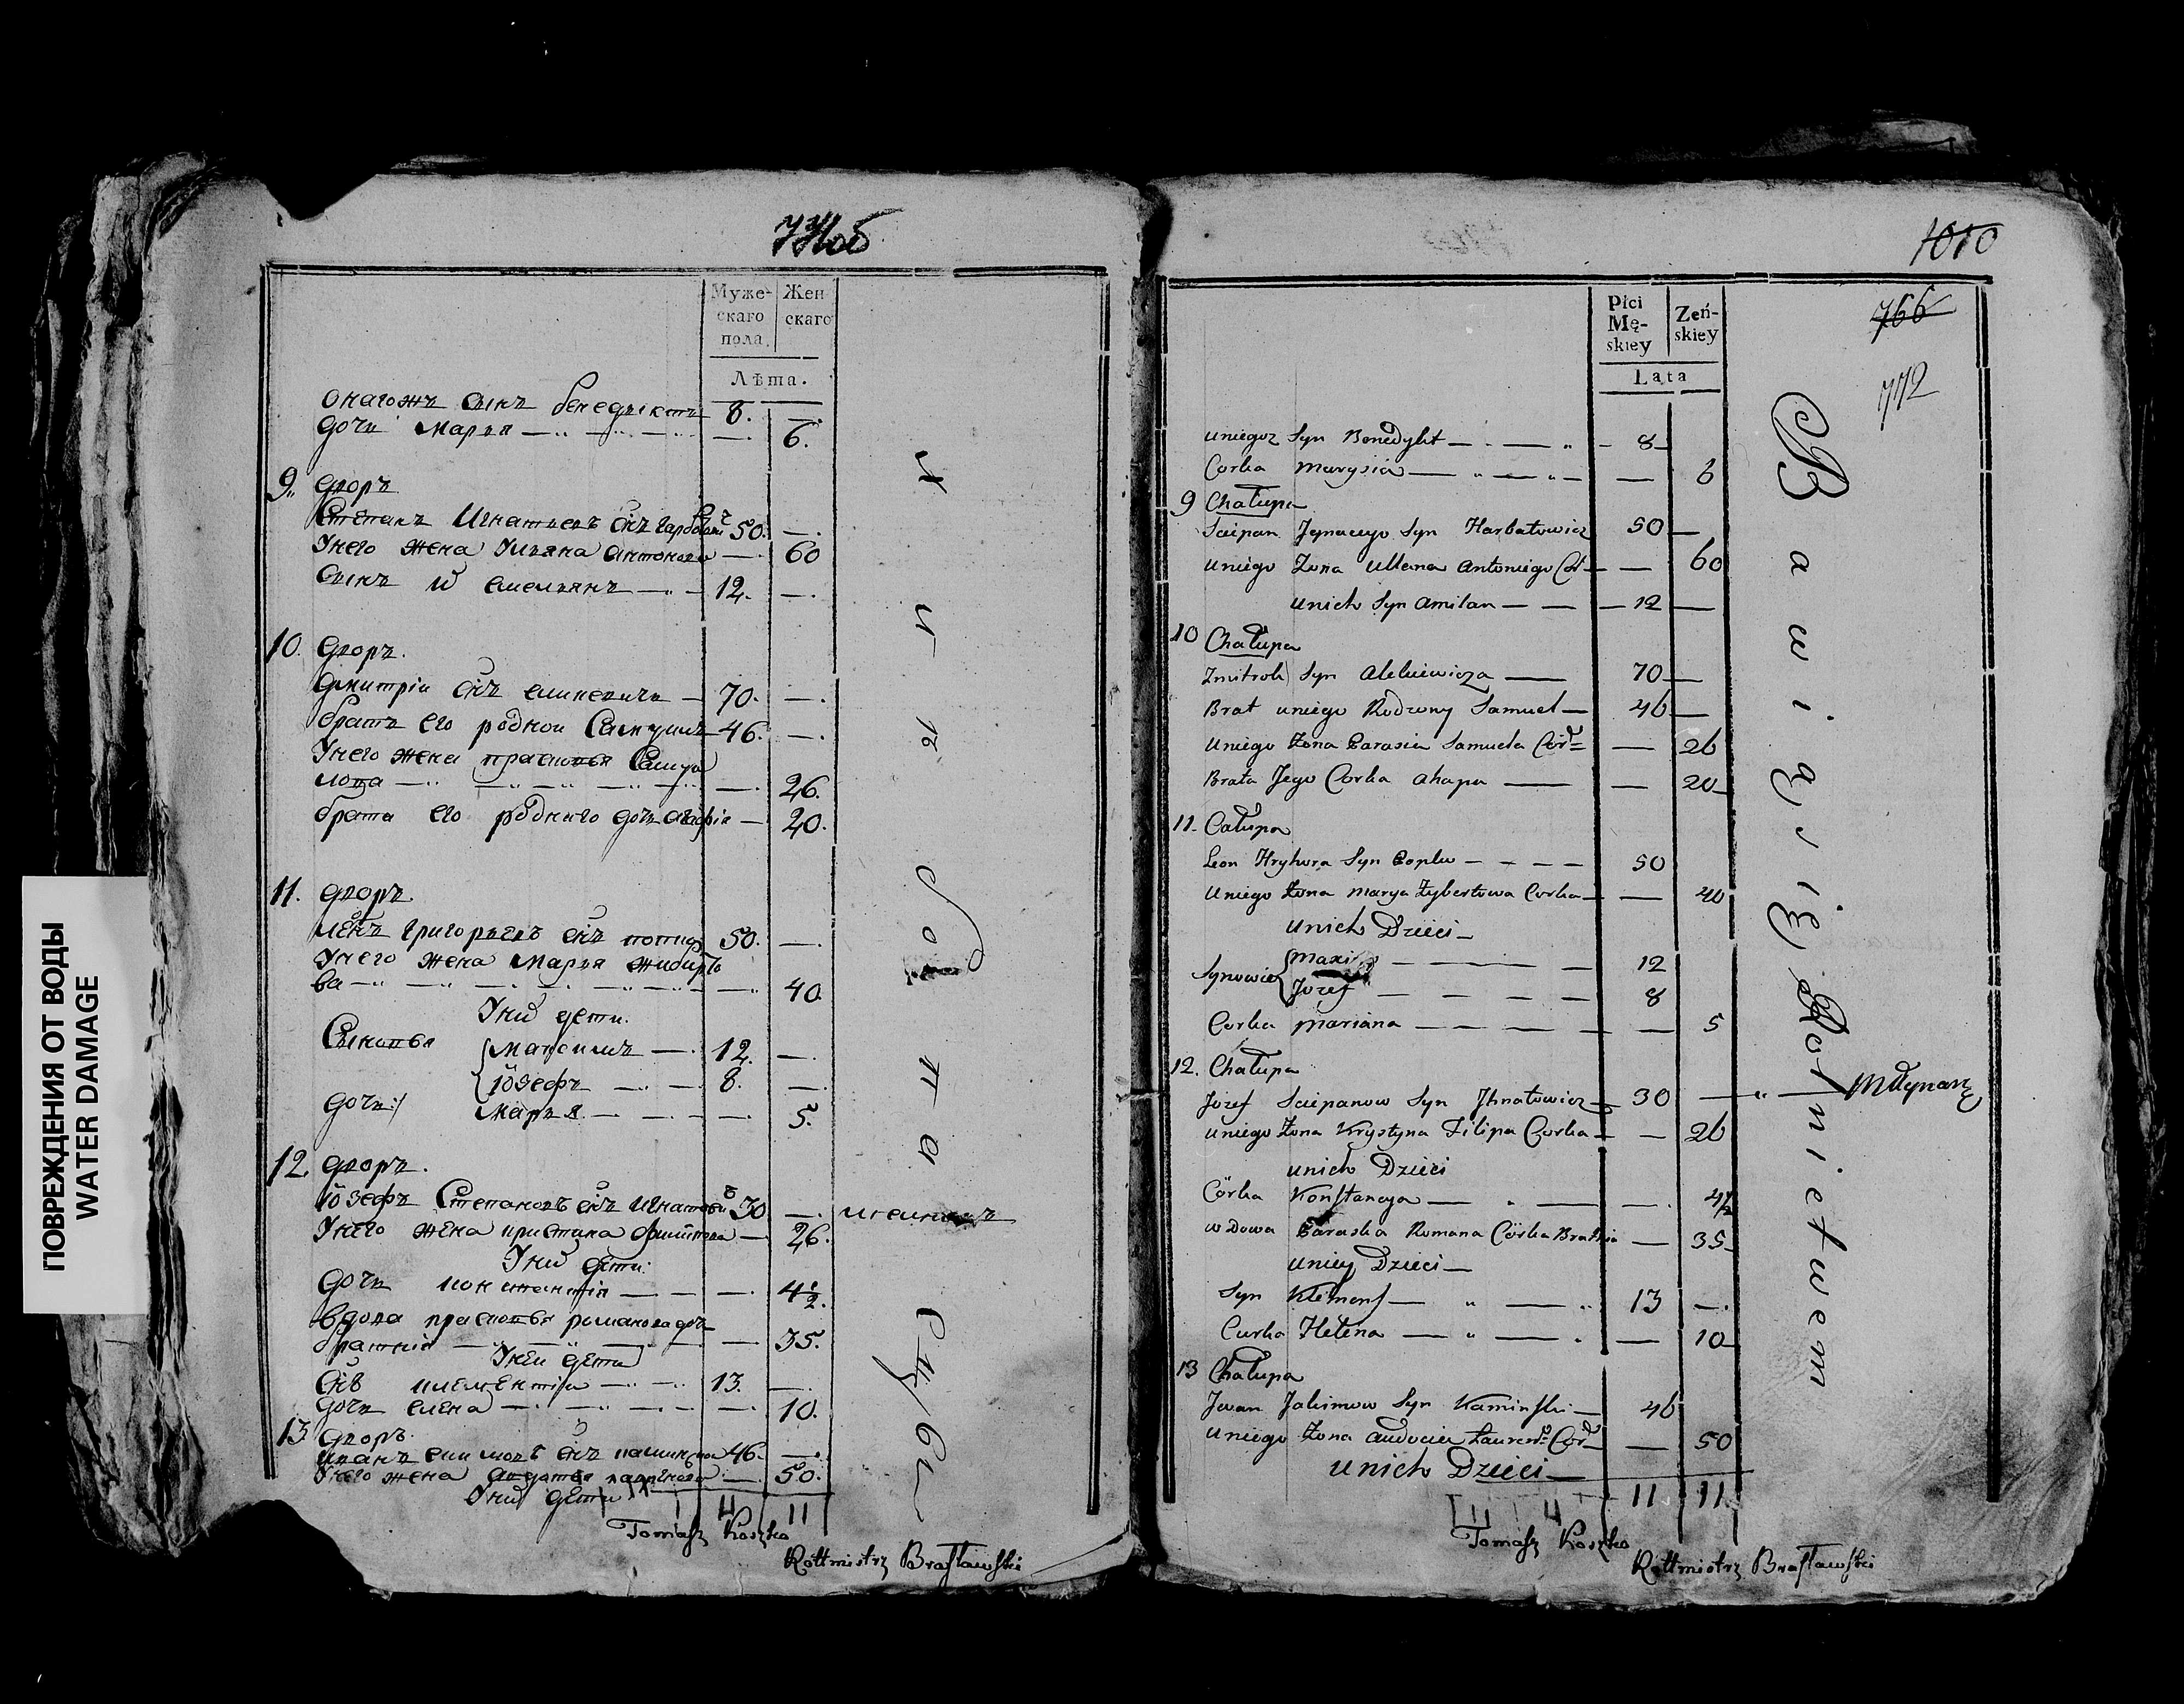 ПОВРЕЖДЕНИЯ ОТ ВОДЫ
WATER DAMAGE
Муже-
скаго
пола.
Жен
скаго
Лѣта.
онагожъ сынъ бенедыктъ 8. —.
дочи Марья — 6.
9. дворъ
Степанъ Игнатьевъ снъ 50. —.
Унего жена Ульяна антонова — 60
сынъ емельянъ — 12. —.
10. дворъ.
дмитрiи снъ — 70. —.
братъ его роднои Самуилъ 46. —.
Унего жена прасковья Самуи
лова — 26.
брата его роднаго дочь агафiя — 20.
11. дворъ.
леонъ григорьевъ снъ 50. —.
Унего жена Марья
ва — 40.
Унихъ дети.
Сыновья Максимъ — 12. —.
iозефъ — 8. —.
дочь Марья — 5.
12. дворъ.
iозефъ Степановъ снъ Игнатови 30 —.
Унего жена кристина филипова — 26.
Унихъ дети.
дочь констанцiя — 4 1/2.
вдова прасковья романова дочь
братнiя — 35.
Унеи дети
снъ климентiи — 13. —.
дочь елена — 10.
13. дворъ.
иванъ снъ каминскои 46. —.
Унего жена авдотья — 50.
Унихъ дети
11 11
Tomasz Koszko
Rottmistrz Brasławski
1010
766
772
Płci
Mę-
skiey
Zeń-
skiey
Lata
uniegoz Syn Benedykt — 8
Corka Marysia — 6
9 Chałupa
Sciepan Jgnacego Syn Harbatowicz 50 —
uniego Zona Ullana Antoniego Cor — 60
unich Syn Amilan — 12 —
10 Chałupa
Zmitrok Syn Alekiewicza — 70 —
Brat uniego Rodzony Samuel — 46 —
Uniego Zona Parasia Samuela Cor — 26
Brata Jego Corka Ahapa — 20
11. Całupa
Leon Hryhora Syn Popko — 50
Uniego Zona Marya Zybertowa Corka — 40
unich Dzieci —
Synowie Maxim — 12
Jozef — 8
Corka Mariana — 5
12. Chałupa
Jozef Sciepanow Syn Jhnatowicz — 30 — Młynarz
uniego Zona Krystyna Filipa Corka — 26
unich Dzieci
Córka Konstancya — 4 1/2
wdowa Paraska Romana Córka Bratnia — 35
uniey Dzieci —
Syn Klimens — 13 —.
Curka Helena — 10
13 Chałupa
Jwan Jakimow Syn Kaminski — 46
Uniego Zona Audocia Cor — 50
unich Dzieci —
11 11
Bawią się Rolnictwem
Tomasz Koszko
Rottmistrz Brasławski